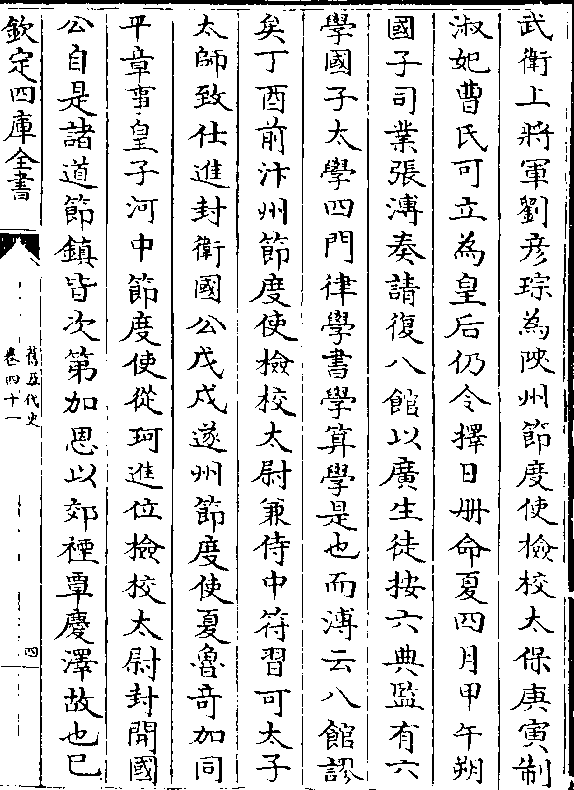 武衛上將軍劉彥琮為陝州節度使檢校太保庚寅制
淑妃曹氏可立為皇后仍令擇日册命夏四月甲午朔
國子司業張溥奏請復八館以廣生徒按六典監有六
學國子太學四門律學書學算學是也而溥云八館謬
矣丁酉前汴州節度使檢校太尉兼侍中符習可太子
太師致仕進封衛國公戊戌遂州節度使夏魯奇加同
平章事皇子河中節度使從珂進位檢校太尉封開國
公自是諸道節鎮皆次第加恩以郊禋覃慶澤故也已
欽定四庫全書
舊五代史
卷四十一
四